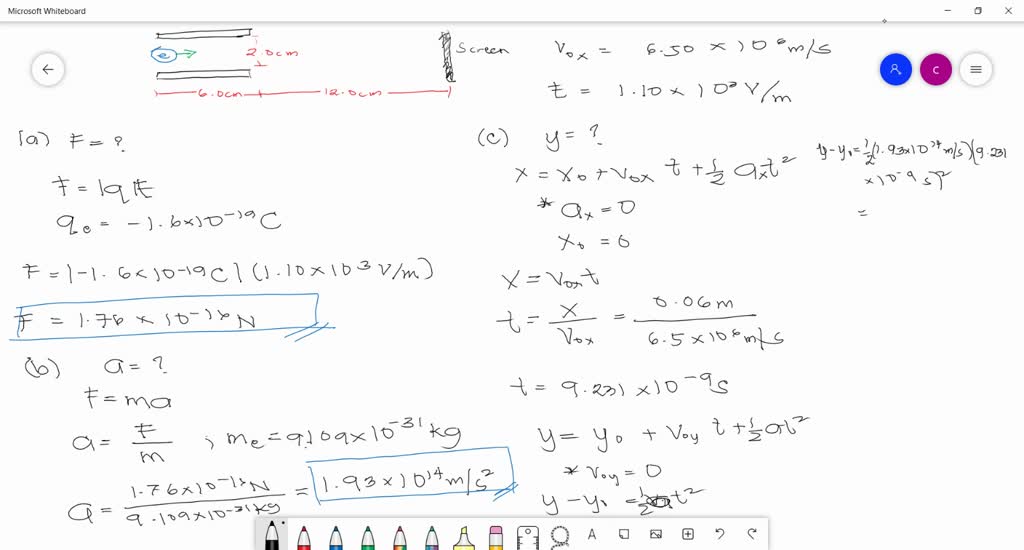 Microsoft Whiteboard
e
2.0cm
Screen
6.0cm
12.0cm
V₀ₓ = 6.50 × 10⁶ m/s
E = 1.10 × 10³ V/m
C
(a) F = ?
F = |q|E
qₑ = -1.6×10⁻¹⁹ C
F = |-1.6×10⁻¹⁹C| (1.10×10³ V/m)
F = 1.76 × 10⁻¹⁶ N
(b) a = ?
F = ma
a = F/m ; mₑ = 9.109×10⁻³¹ kg
a = 1.76×10⁻¹⁶N / 9.109×10⁻³¹ kg = 1.93 × 10¹⁴ m/s²
(c) y = ?
x = x₀ + V₀ₓ t + ½ aₓt²
* aₓ = 0
x₀ = 0
x = V₀ₓt
t = x/V₀ₓ = 0.06m / 6.5×10⁶ m/s
t = 9.231 × 10⁻⁹ s
y = y₀ + V₀y t + ½at²
* V₀y = 0
y - y₀ = ½at²
y-y₀ = ½(1.93×10¹⁴ m/s)(9.231
×10⁻⁹ s)²
=
A